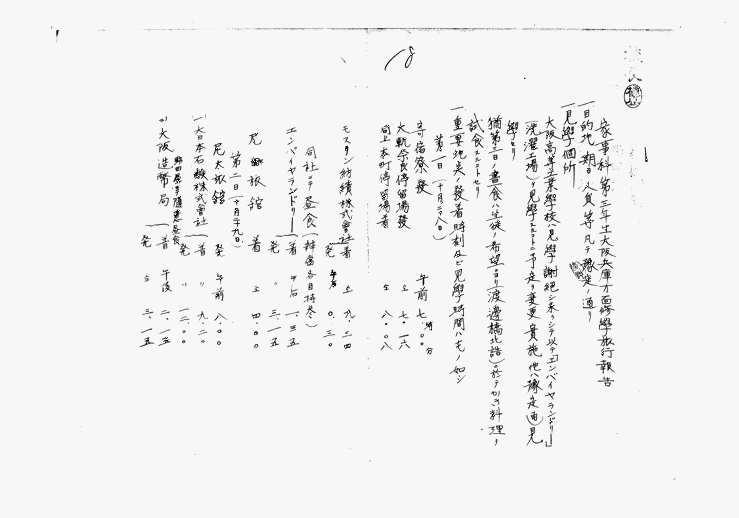 18
家事科第三年生大阪兵庫方面修學旅行報告
一目的地、期日、人員等凡テ豫定ノ通リ
一見學個所
大阪高等工業學校ハ見學謝絶シ来リシヲ以テ「エンバイヤランドリー」
(洗濯工場)ヲ見學スルコトニ予定ヲ変更実施他ハ豫定通見
學セリ
猶第二日ノ晝食ハ生徒ノ希望ニヨリ(渡邊橋北詰)ニ於テかき料理ヲ
試食スルコトヽセリ
一重要地矣ノ發着時刻及ビ見學時間ハ左ノ如シ
第一日(十月二十八日)
寄宿寮發 午前 七時 〇〇分
大軌奈良停留場發 〃 七・一六
同上本町停留場着 〃 八・〇八
モスリン紡績株式會社 着 〃 九・三四
發 午后 〇・三〇
同社ニテ昼食(辨當各自持参)
エンバイヤランドリー 着 午后 一・三五
発 〃 三・一五
尼 旅舘 着 〃 四・〇〇
第二日(十月二十九日)
尼 旅舘 発 午前 八・〇〇
一)大日本石鹸株式會社 着 〃 九・二〇
発 〃 一二・〇〇
昼食
大阪造幣局 着 午後 二・一五
発 〃 三・一五